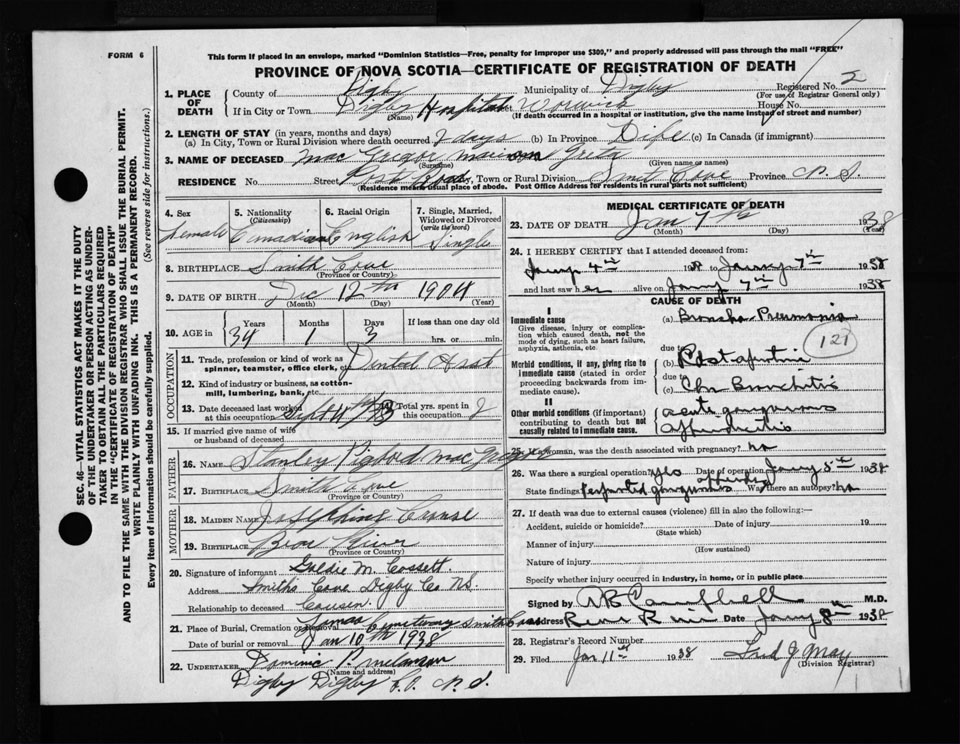 FORM 6
This form if placed in an envelope, marked "Dominion Statistics—Free, penalty for improper use $300," and properly addressed will pass through the mail "FREE"
PROVINCE OF NOVA SCOTIA—CERTIFICATE OF REGISTRATION OF DEATH
SEC. 46—VITAL STATISTICS ACT MAKES IT THE DUTY
OF THE UNDERTAKER OR PERSON ACTING AS UNDER-
TAKER TO OBTAIN ALL THE PARTICULARS REQUIRED
IN THE "CERTIFICATE OF REGISTRATION OF DEATH"
AND TO FILE THE SAME WITH THE DIVISION REGISTRAR WHO SHALL ISSUE THE BURIAL PERMIT.
WRITE PLAINLY WITH UNFADING INK. THIS IS A PERMANENT RECORD.
Every item of information should be carefully supplied. (See reverse side for instructions.)
1. PLACE OF DEATH County of Digby Municipality of Digby Registered No. 2
(For use of Registrar General only)
If in City or Town Digby Hospital Warwick House No.
(Name) (If death occurred in a hospital or institution, give the name instead of street and number)
2. LENGTH OF STAY (in years, months and days)
(a) In City, Town or Rural Division where death occurred 2 days (b) In Province Life (c) In Canada (if immigrant)
3. NAME OF DECEASED Mac Gregor Marion
(Surname) (Given name or names)
RESIDENCE No. Street Post Road City, Town or Rural Division Smith Cove Province N. S.
(Residence means usual place of abode. Post Office Address for residents in rural parts not sufficient)
4. Sex Female
5. Nationality (Citizenship) Canadian
6. Racial Origin English
7. Single, Married, Widowed or Divorced (write the word) Single
8. BIRTHPLACE Smith Cove
(Province or Country)
9. DATE OF BIRTH Dec 12th 1904
(Month) (Day) (Year)
10. AGE in Years Months Days If less than one day old
34 1 3 hrs. or min.
OCCUPATION
11. Trade, profession or kind of work as spinner, teamster, office clerk, etc. Dental Asst
12. Kind of industry or business, as cotton-mill, lumbering, bank, etc.
13. Date deceased last worked at this occupation Sept Total yrs. spent in this occupation 2
15. If married give name of wife or husband of deceased
FATHER
16. NAME Stanley Mac Gregor
17. BIRTHPLACE Smith Cove
(Province or Country)
MOTHER
18. MAIDEN NAME Josephine Crouse
19. BIRTHPLACE Bear River
(Province or Country)
20. Signature of informant Goldie M. Cossett
Address Smiths Cove Digby Co NS.
Relationship to deceased Cousen.
21. Place of Burial, Cremation or Removal Cemetery Smith Cove
Date of burial or removal Jan 10th 1938
22. UNDERTAKER Dominic P. Melanson
(Name and address)
Digby Digby Co. N. S.
MEDICAL CERTIFICATE OF DEATH
23. DATE OF DEATH Jan 7th 1938
(Month) (Day) (Year)
24. I HEREBY CERTIFY that I attended deceased from:
Jany 4th 1938 to Jany 7th 1938
and last saw her alive on Jany 7th 1938
CAUSE OF DEATH
I
Immediate cause (a) Broncho Pneumonia
Give disease, injury or complication which caused death, not the mode of dying, such as heart failure, asphyxia, asthenia, etc.
121
due to
Morbid conditions, if any, giving rise to immediate cause (stated in order proceeding backwards from immediate cause). (b) Post-operative
due to
(c) Chr Bronchitis
II
Other morbid conditions (if important) contributing to death but not causally related to immediate cause. acute gangrenous
appendicitis
25. If a woman, was the death associated with pregnancy? no
26. Was there a surgical operation? Yes Date of operation Jany 1938
State findings perforated gangrenous Was there an autopsy? no
27. If death was due to external causes (violence) fill in also the following:—
Accident, suicide or homicide? Date of injury 19
(State which)
Manner of injury
(How sustained)
Nature of injury
Specify whether injury occurred in industry, in home, or in public place
Signed by Campbell M.D.
Address Bear River Date Jany 8th 1938
28. Registrar's Record Number
29. Filed Jan 11th 1938 Fred J May
(Division Registrar)